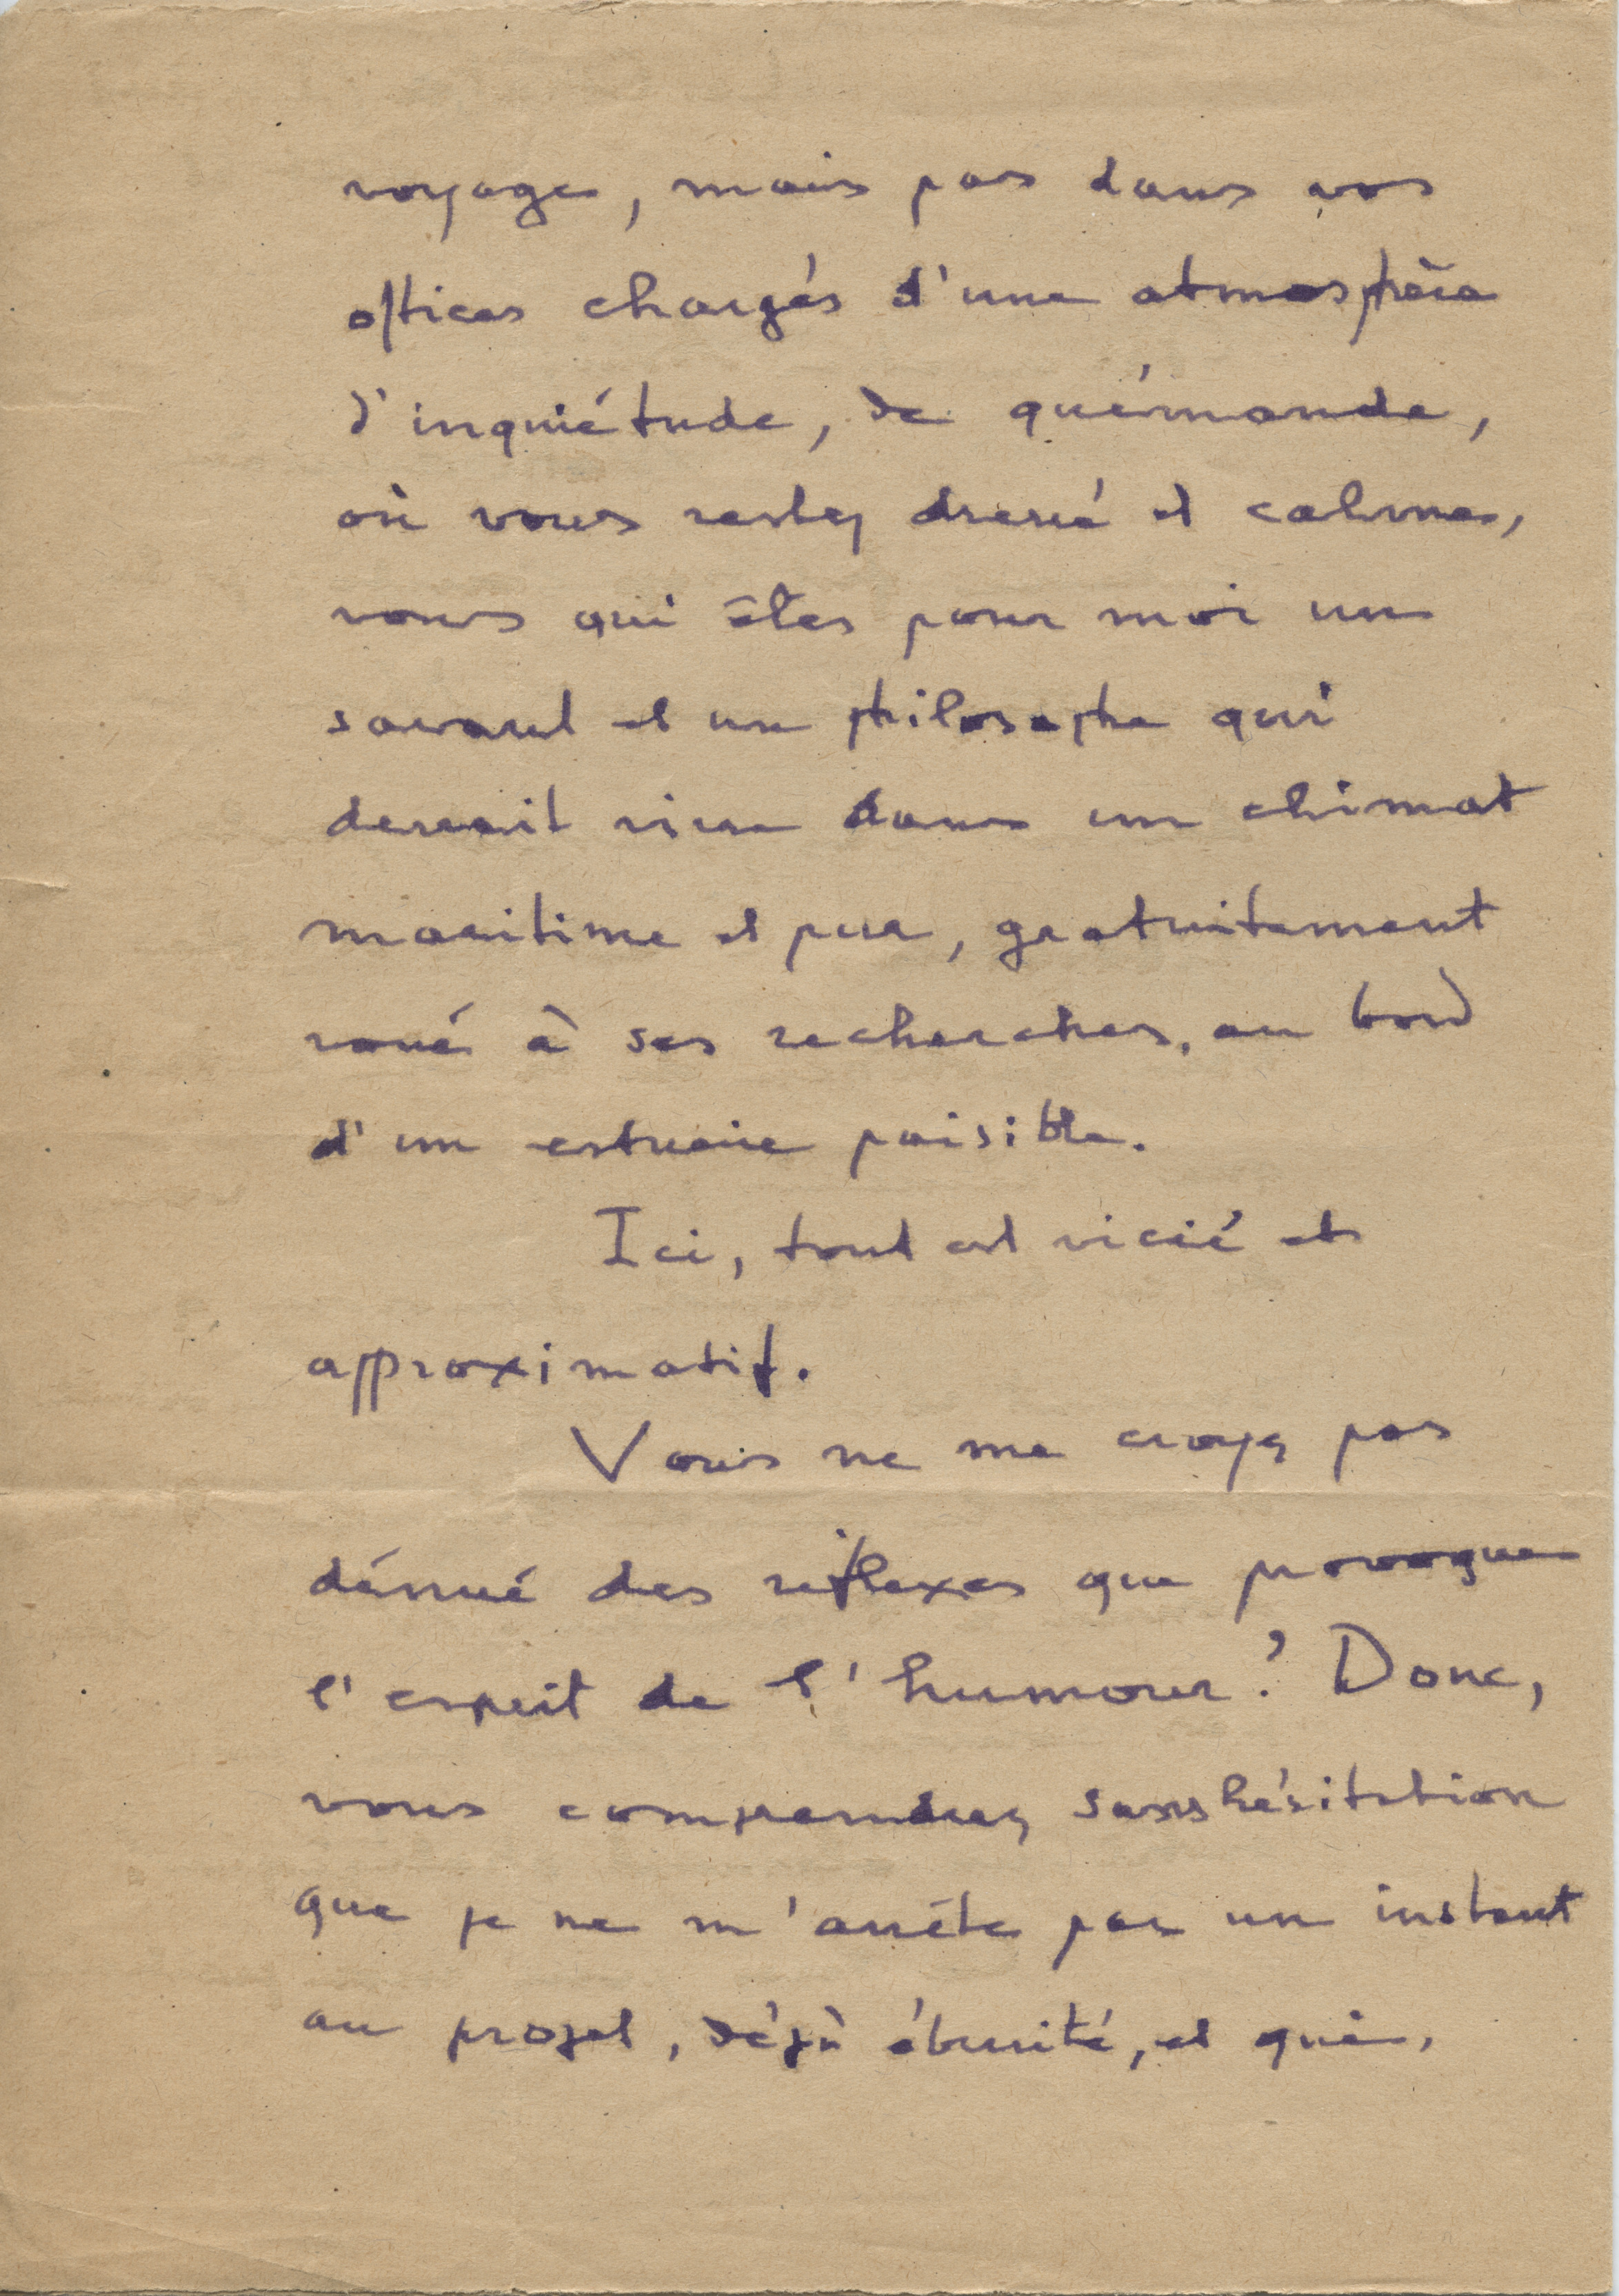 voyage, mais pas dans vos
offices chargés d'une atmosphère
d'inquiétude, de quémande,
où vous restez dressé et calme,
vous qui êtes pour moi un
savant et un philosophe qui
devrait vivre dans un climat
maritime et pur, gratuitement
voué à ses recherches, au bord
d'un estuaire paisible.
Ici, tout est vicié et
approximatif.
Vous ne me croyez pas
dénué des réflexes que provoque
l'esprit de l'humour? Donc,
vous comprendrez sans hésitation
que je ne m'arrête pas un instant
au projet, déjà ébruité, et qui,